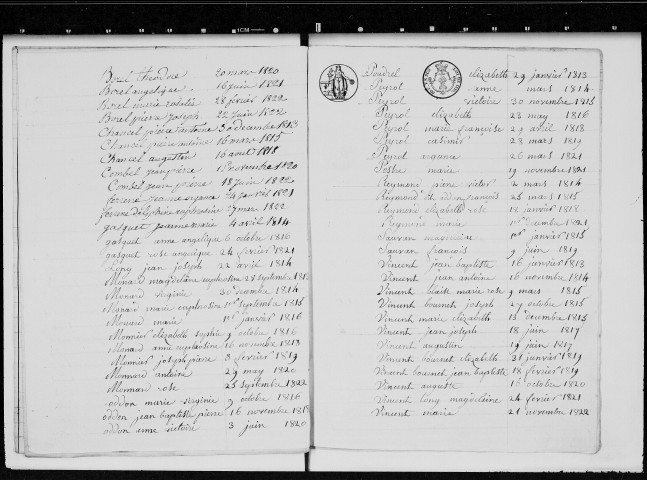 Borel théodore 20 mars 1820
Borel angelique 16 juin 1821
Borel marie rosalie 28 février 1822
Borel pierre joseph 22 juin 1822
Chancel pierre antoine 30 decembre 1813
Chancel pierre antoine 16 mars 1815
Chancel augustin 10 août 1818
Combel jean pierre 11 novembre 1820
Combel jean pierre 18 juin 1822
jeanne susanne 24 avril 1821
delphine euphrosine 27 mai 1822
gasquet jeanne marie 4 avril 1814
gasquet anne angelique 6 octobre 1816
gasquet rose angelique 24 février 1821
Long jean joseph 22 avril 1814
Monard magdelaine euphrosine 27 septembre 1813
Monard virginie 30 decembre 1814
Monard marie euphrosine 1er septembre 1815
Monard marie 1er janvier 1816
Monnier elizabeth sophie 9 octobre 1816
Monard anne euphrosine 16 novembre 1818
Monnier joseph pierre 8 février 1819
Monnard antoine 29 may 1820
Monnard rose 25 septembre 1822
oddon marie virginie 9 octobre 1816
odden jean baptiste pierre 16 novembre 1818
odden anne victoire 3 juin 1820
elizabeth 29 janvier 1813
Peyrol anne mars 1814
Peyrol victoire 30 novembre 1815
Peyrol elizabeth 23 may 1816
Peyrol marie françoise 29 avril 1818
Peyrol casimir 28 mars 1819
Peyrol 26 mars 1821
marie 19 novembre 1821
Reymond pierre victor 2 mars 1814
Reymond françois 25 mars 1815
Reymond elizabeth rose 12 janvier 1818
Reymond marie 1er decembre 1821
Sauvan 1er janvier 1815
Sauvan francois 9 juin 1819
Vincent jean baptiste 16 janvier 1813
Vincent jean antoine 16 novembre 1814
Vincent marie rose 9 mars 1815
Vincent bournet joseph 27 octobre 1815
Vincent marie elizabeth 13 decembre 1815
Vincent jean joseph 18 juin 1817
Vincent augustin 19 juin 1817
Vincent bournet elizabeth 31 janvier 1819
Vincent bournet jean baptiste 18 février 1819
Vincent auguste 16 octobre 1820
Vincent long magdeleine 24 février 1821
Vincent marie 21 novembre 1822